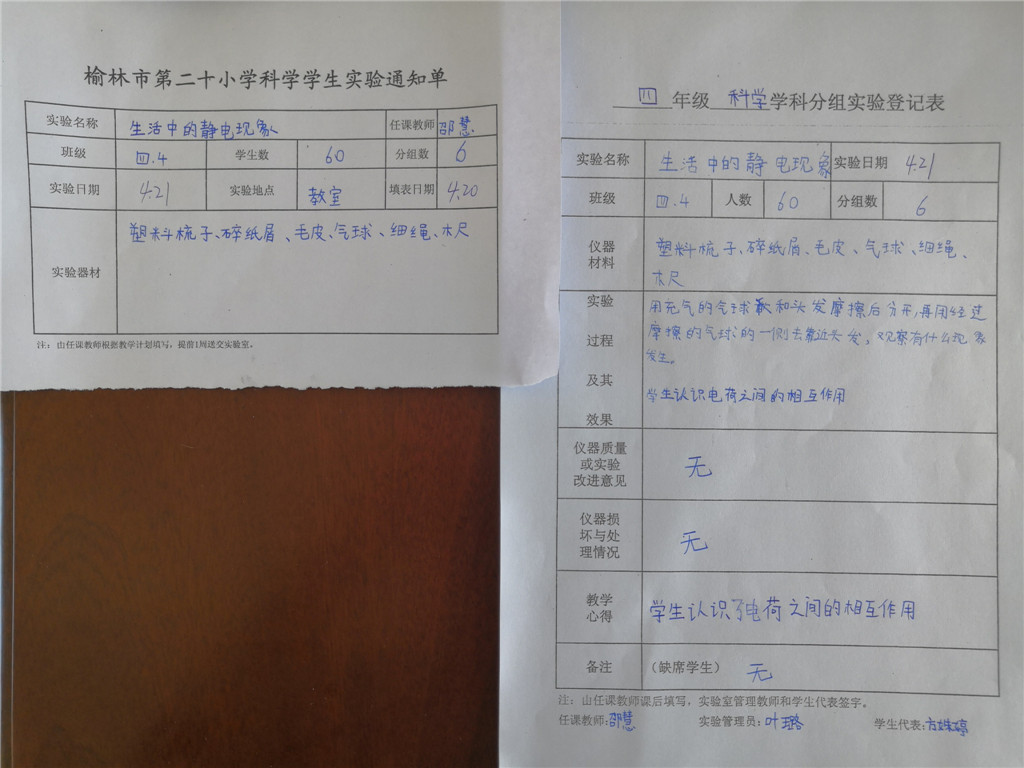 榆林市第二十小学科学学生实验通知单
实验名称 生活中的静电现象 任课教师 邵慧
班级 四.4 学生数 60 分组数 6
实验日期 4.21 实验地点 教室 填表日期 4.20
实验器材 塑料梳子、碎纸屑、毛皮、气球、细绳、木尺
注：由任课教师根据教学计划填写，提前1周送交实验室。
四 年级 科学 学科分组实验登记表
实验名称 生活中的静电现象 实验日期 4.21
班级 四.4 人数 60 分组数 6
仪器材料 塑料梳子、碎纸屑、毛皮、气球、细绳、
木尺
实验过程及其效果 用充气的气球和头发摩擦后分开,再用经过
摩擦的气球的一侧去靠近头发，观察有什么现象
发生。
学生认识电荷之间的相互作用
仪器质量或实验改进意见 无
仪器损坏与处理情况 无
教学心得 学生认识了电荷之间的相互作用
备注 （缺席学生） 无
注：由任课教师课后填写，实验室管理教师和学生代表签字。
任课教师:邵慧 实验管理员:叶璐 学生代表:方姝婷